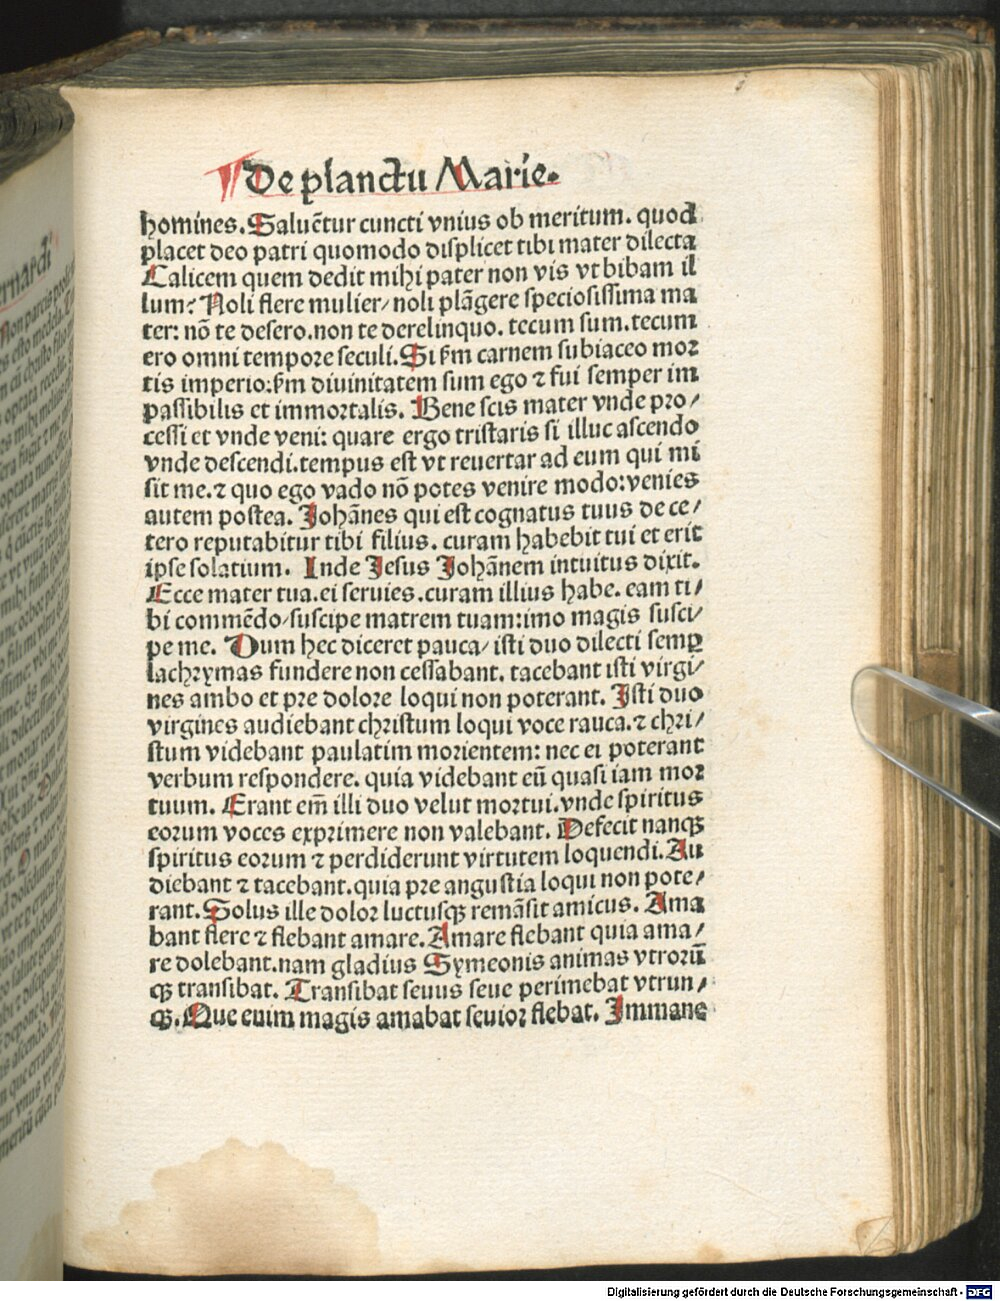 ¶ De planctu Marie.
homines. Saluētur cuncti vnius ob meritum. quod
placet deo patri quomodo displicet tibi mater dilecta
Calicem quem dedit mihi pater non vis vt bibam il
lum? Noli flere mulier/ noli plāgere speciosissima ma
ter: nō te desero. non te derelinquo. tecum sum. tecum
ero omni tempore seculi. Si ẜm carnem subiaceo mor
tis imperio: ẜm diuinitatem sum ego ⁊ fui semper im
passibilis et immortalis. Bene scis mater vnde pro/
cessi et vnde veni: quare ergo tristaris si illuc ascendo
vnde descendi. tempus est vt reuertar ad eum qui mi
sit me. ⁊ quo ego vado nō potes venire modo: venies
autem postea. Johānes qui est cognatus tuus de ce/
tero reputabitur tibi filius. curam habebit tui et erit
ipse solatium. Inde Jesus Johānem intuitus dixit.
Ecce mater tua. ei seruies. curam illius habe. eam ti/
bi commēdo/ suscipe matrem tuam: imo magis susci/
pe me. Dum hec diceret pauca/ isti duo dilecti semꝑ
lachrymas fundere non cessabant. tacebant isti virgi/
nes ambo et pre dolore loqui non poterant. Isti duo
virgines audiebant christum loqui voce rauca. ⁊ chri/
stum videbant paulatim morientem: nec ei poterant
verbum respondere. quia videbant eū quasi iam mor
tuum. Erant em̄ illi duo velut mortui. vnde spiritus
eorum voces exprimere non valebant. Defecit nanqꝫ
spiritus eorum ⁊ perdiderunt virtutem loquendi. Au
diebant ⁊ tacebant. quia pre angustia loqui non pote/
rant. Solus ille dolor luctusqꝫ remāsit amicus. Ama
bant flere ⁊ flebant amare. Amare flebant quia ama/
re dolebant. nam gladius Symeonis animas vtrorū
qꝫ transibat. Transibat seuus seue perimebat vtrun/
qꝫ. Que euim magis amabat seuior flebat. Immane
Digitalisierung gefördert durch die Deutsche Forschungsgemeinschaft - DFG